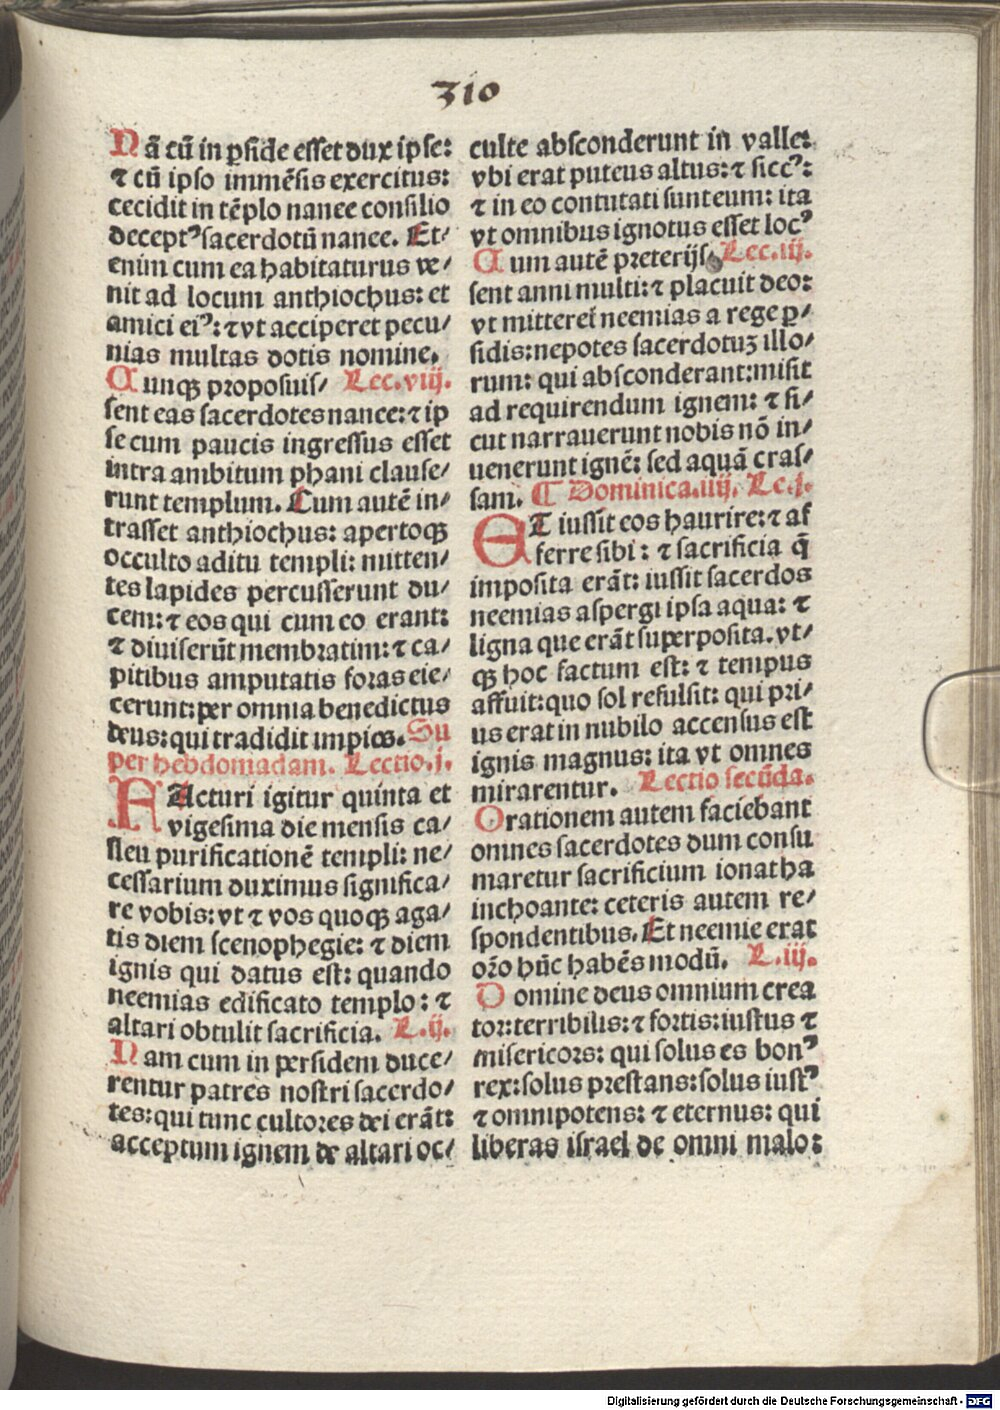 310
Nã cũ in ꝑſide eſſet dux ipſe:
⁊ cũ ipſo immẽſis exercitus:
cecidit in tẽplo nanee conſilio
deceptꝰ ſacerdotũ nanee. Et⸗
enim cum ea habitaturus ve⸗
nit ad locum anthiochus: et
amici eiꝰ: ⁊ vt acciperet pecu⸗
nias multas dotis nomine.
Cunqꝫ propoſuiſ⸗ Lec.viij.
ſent eas ſacerdotes nance: ⁊ ip
ſe cum paucis ingreſſus eſſet
intra ambitum phani clauſe⸗
runt templum. Cum autẽ in⸗
traſſet anthiochus: apertoqꝫ
occulto aditu templi: mitten⸗
tes lapides percuſſerunt du⸗
cem: ⁊ eos qui cum eo erant:
⁊ diuiſerũt membratim: ⁊ ca⸗
pitibus amputatis foras eie⸗
cerunt: per omnia benedictus
deus: qui tradidit impios. Su
per hebdomadam. Lectio.j.
FActuri igitur quinta et
vigeſima die menſis ca⸗
ſleu purificationẽ templi: ne⸗
ceſſarium duximus ſignifica⸗
re vobis: vt ⁊ vos quoqꝫ aga⸗
tis diem ſcenophegie: ⁊ diem
ignis qui datus eſt: quando
neemias edificato templo: ⁊
altari obtulit ſacrificia. L.ij.
Nam cum in perſidem duce⸗
rentur patres noſtri ſacerdo⸗
tes: qui tunc cultores dei erãt:
acceptum ignem de altari oc⸗
culte abſconderunt in valle:
vbi erat puteus altus: ⁊ ſiccꝰ:
⁊ in eo contutati ſunt eum: ita
vt omnibus ignotus eſſet locꝰ
Cum autẽ preterijſ Lec.iij.
ſent anni multi: ⁊ placuit deo:
vt mitteret neemias a rege ꝑ⸗
ſidis: nepotes ſacerdotuꝫ illo⸗
rum: qui abſconderant: miſit
ad requirendum ignem: ⁊ ſi⸗
cut narrauerunt nobis nõ in⸗
uenerunt ignẽ: ſed aquã craſ⸗
ſam. ¶ Dominica.iiij. Le.j.
ET iuſſit eos haurire: ⁊ af
ferre ſibi: ⁊ ſacrificia q̃
impoſita erãt: iuſſit ſacerdos
neemias aſpergi ipſa aqua: ⁊
ligna que erãt ſuperpoſita. vt⸗
qꝫ hoc factum eſt: ⁊ tempus
affuit: quo ſol refulſit: qui pri⸗
us erat in nubilo accenſus eſt
ignis magnus: ita vt omnes
mirarentur. Lectio ſecũda.
Orationem autem faciebant
omnes ſacerdotes dum conſu
maretur ſacrificium ionatha
inchoante: ceteris autem re⸗
ſpondentibus. Et neemie erat
orõ hũc habẽs modũ. L.iij.
Domine deus omnium crea
tor: terribilis: ⁊ fortis: iuſtus ⁊
miſericors: qui ſolus es bonꝰ
rex: ſolus preſtans: ſolus iuſtꝰ
⁊ omnipotens: ⁊ eternus: qui
liberas iſrael de omni malo:
Digitalisierung gefördert durch die Deutsche Forschungsgemeinschaft - DFG